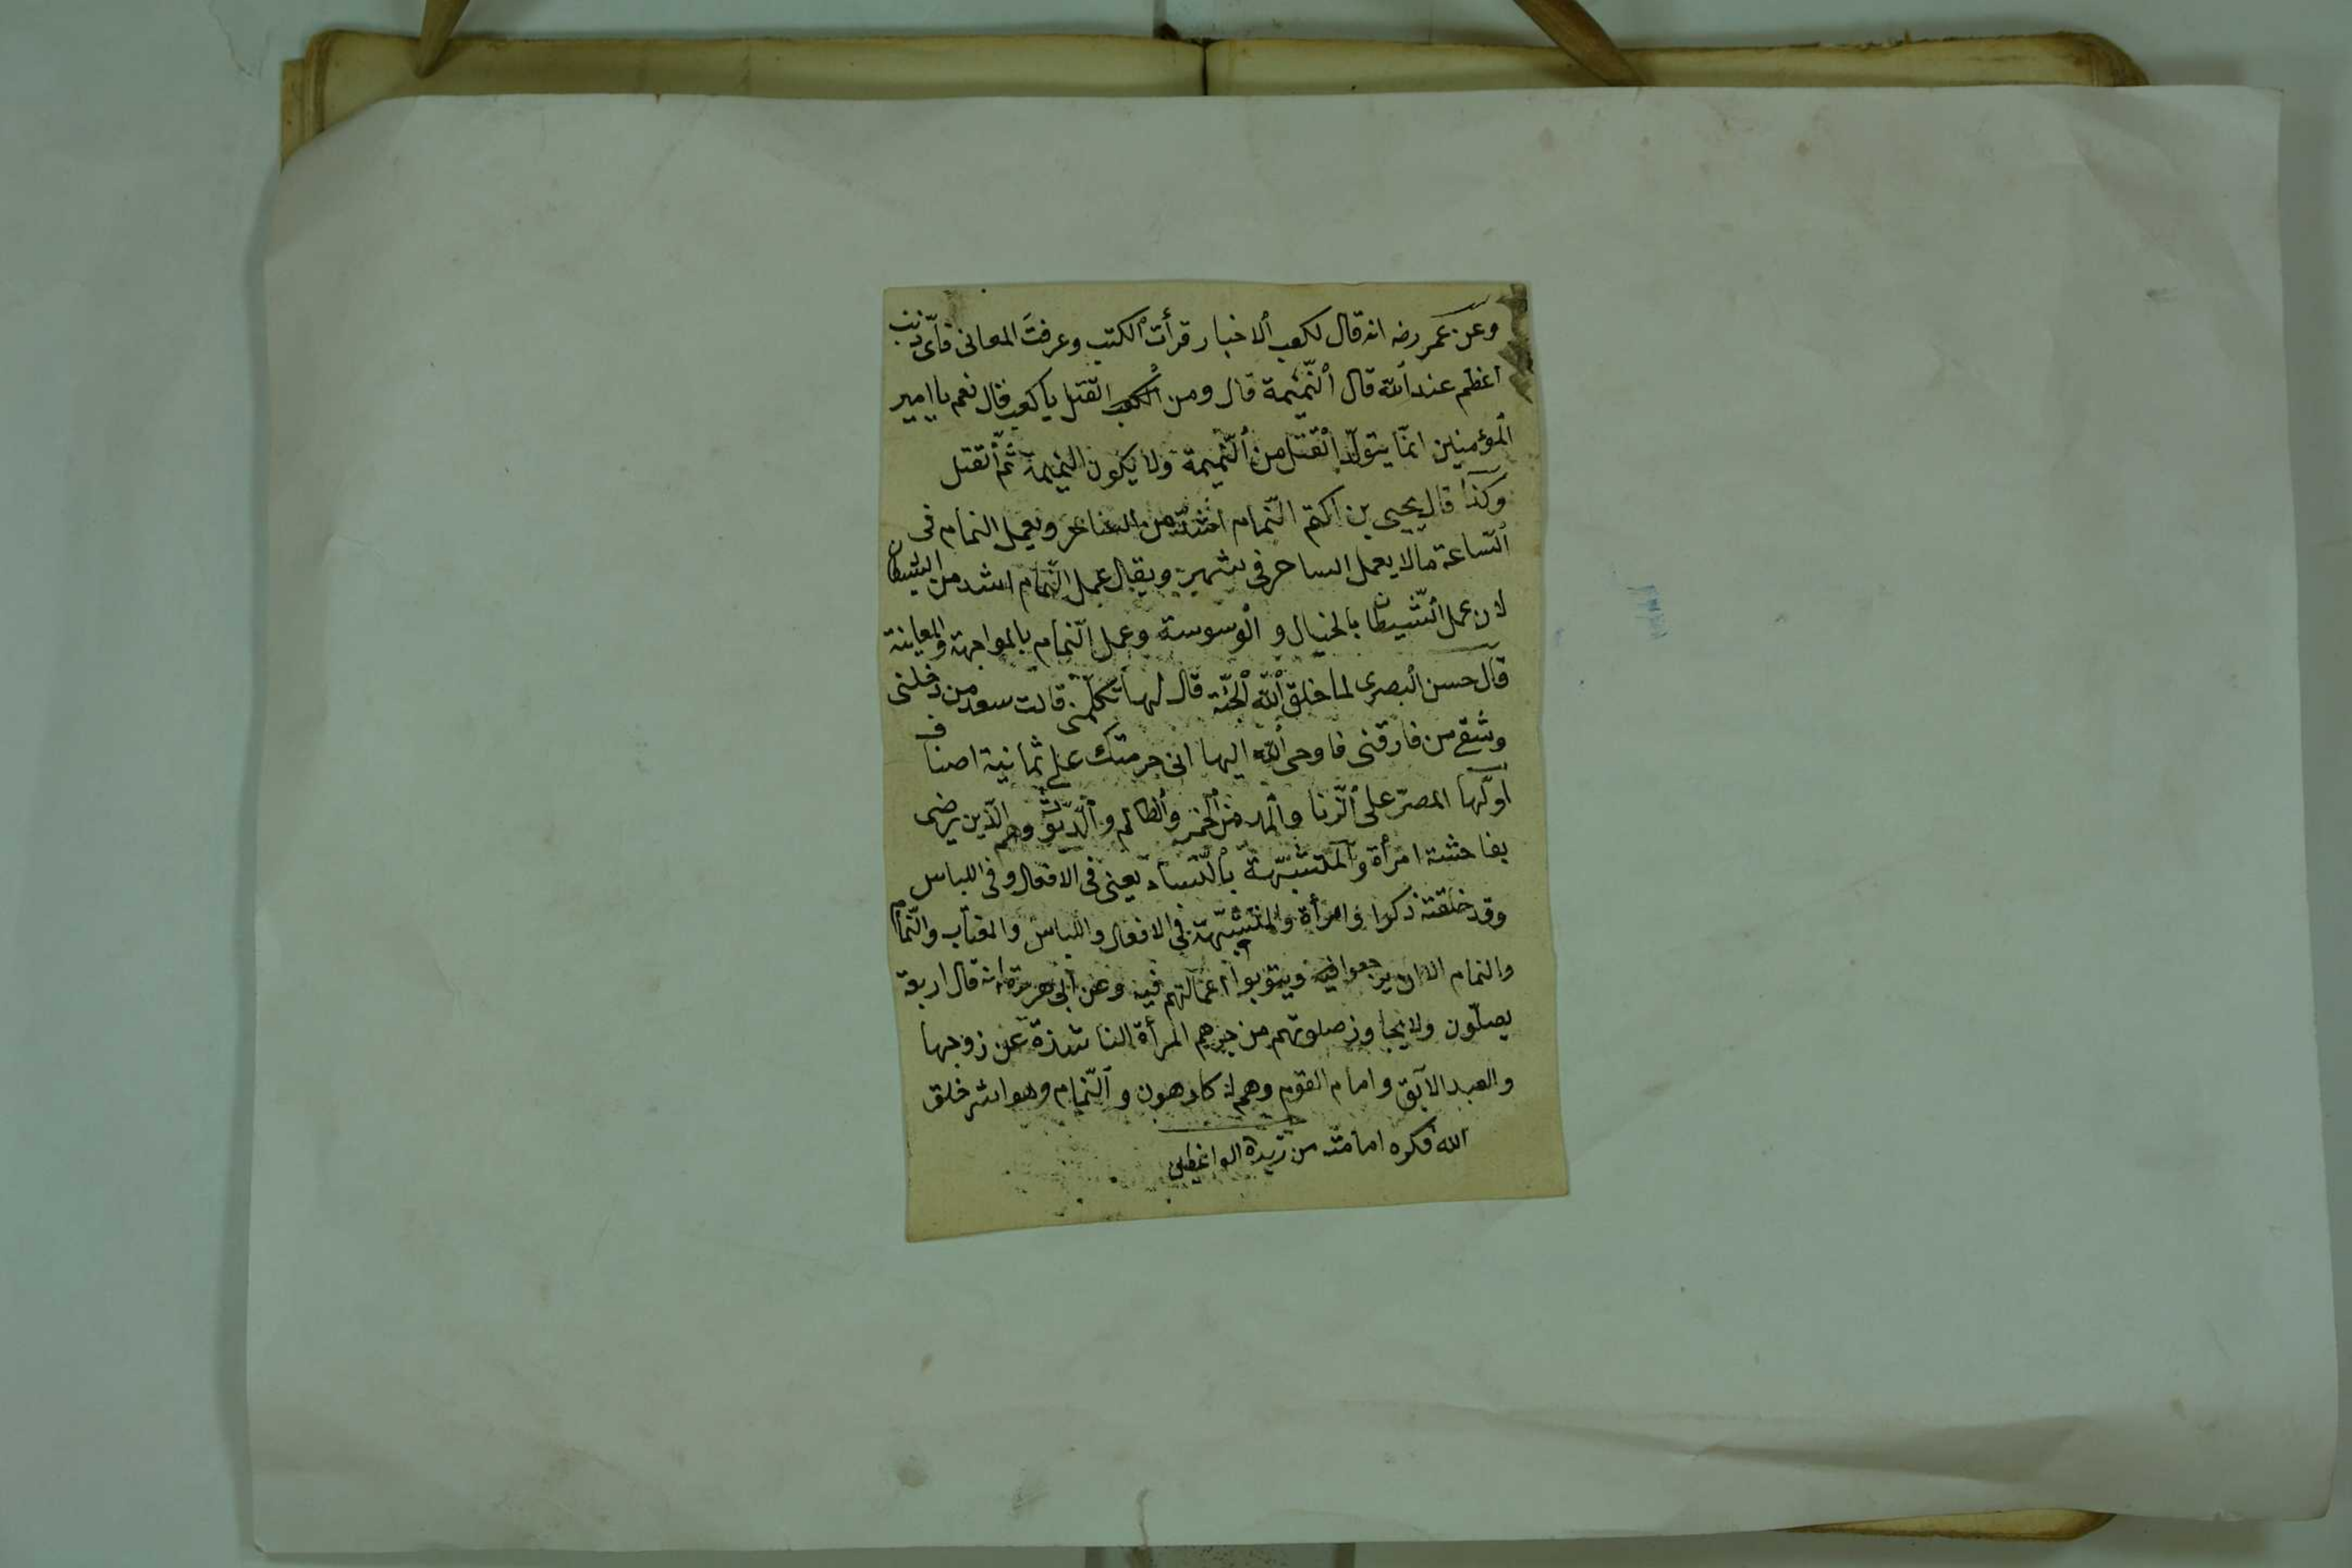 وعن عمر رضه انه قال لكعب ٱلاخبار قرأت ٱلكتب وعرفتَ المعانى فاىّ ذنب
اعظم عند ٱلله قال ٱلنّميمة قال ومن القتل يا كعب قال نعم يا امير
ٱلمؤمنين انمّا يتولّد ٱلقتل من ٱلنّميمة ولا يكون النميمة ثمّ ٱلقتل
وكذا قال يحيى بن اكثم النّمام اشدّ من الساحر ويعمل النمام فى
ٱلسّاعة مالا يعمل الساحر فى شهر ويقال عمل النّمام اشد من الشيطان
لان عمل ٱلشّيطان بالخيال و ٱلوسوسة وعمل النّمام بالمواجهة والمعاينة
قال حسن ٱلبصرى لما خلق ٱلله ٱلجنّة قال لها تكلّمى قالت سعد من دخلنى
وشقى من فارقنى فاوحى ٱلله اليها انى حرمتك على ثمانية اصناف
اوّلها المصرّ على ٱلزّنا وٱلمدمن ٱلخمر وٱلظالم وٱلدّيّوث وهم الّذين يرضى
بفاحشة امرأة وٱلمتشبّهة بٱلنّساء يعنى فى الافعال وفى اللباس
وقد خلقته ذكرا وامرأة والمتشبّهة فى الافعال واللباس والمغتاب والنّمام
والنمام الا ان يرجعوا فيه ويتوبوا اعمالهم فيه وعن ابى هريرة انه قال اربعة
يصلّون ولا يجاوز صلوتهم من المرأة الناشزة عن زوجها
والعبد الآبق وامام القوم وهم له كارهون وٱلنّمام وهو اشر خلق
الله فكره امامته من زبدة الواعظين